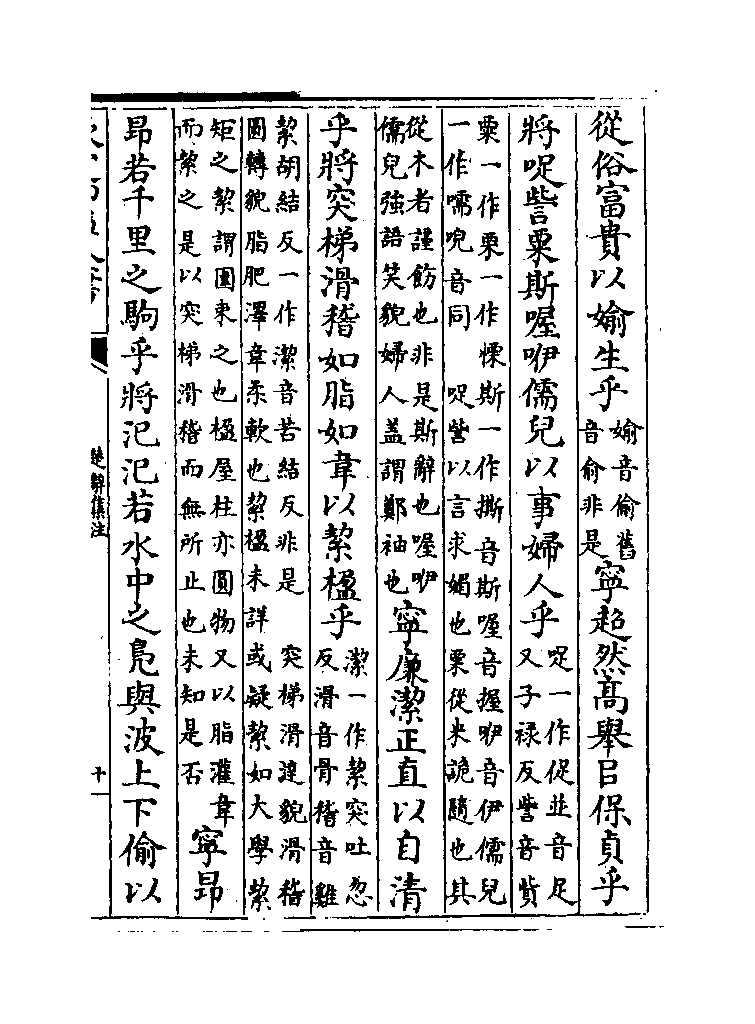 從俗富貴以媮生乎媮音偷舊音俞非是寧超然高舉㠯保貞乎
將哫訾粟斯喔咿儒兒以事婦人乎哫一作促並音足又子祿反訾音貲
粟一作栗一作慄斯一作撕音斯喔音握咿音伊儒兒一作嚅唲音同 哫訾以言求媚也粟從米詭隨也其
從木者謹飭也非是斯辭也喔咿儒兒強語笑貌婦人盖謂鄭袖也寧廉潔正直以自清
乎將突梯滑稽如脂如韋以絜楹乎潔一作絜突吐忽反滑音骨稽音雞
絜胡結反一作潔音苦結反非是 突梯滑澾貌滑稽圓轉貌脂肥澤韋柔軟也絜楹未詳或疑絜如大學絜
矩之絜謂圍束之也楹屋柱亦圓物又以脂灌韋而絜之是以突梯滑稽而無所止也未知是否寧昂
昂若千里之駒乎將氾氾若水中之鳧與波上下偷以
楚辭集注
十